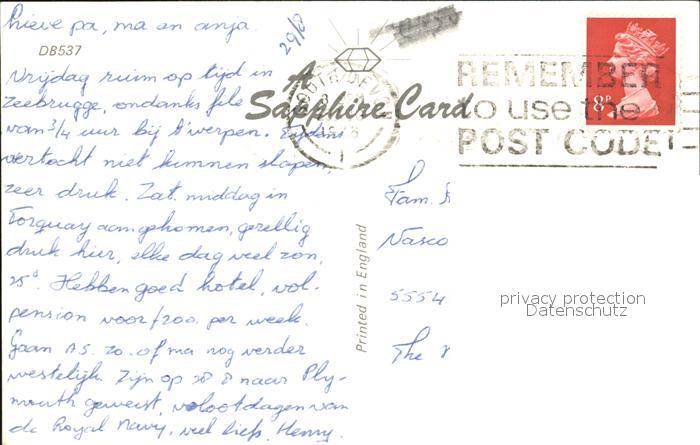 Lieve pa, ma en anja.
29/8
DB537
A
Sapphire Card
REMEMBER
to use the
POST CODE
8P
Vrijdag ruim op tijd in
Zeebrugge, ondanks file
van 3/4 uur bij A'werpen. Tijdens
overtocht niet kunnen slapen,
zeer druk. Zat. middag in
Torquay aangekomen, gezellig
druk hier, elke dag veel zon,
25°. Hebben goed hotel, vol-
pension voor f200. per week.
Gaan A.S. zo. of ma nog verder
westelijk. Zijn op 28 8 naar Ply-
mouth geweest, vlootdagen van
de Royal Navy, veel liefs, Henny.
Printed in England
Fam.
Nasco
5554
The
privacy protection
Datenschutz